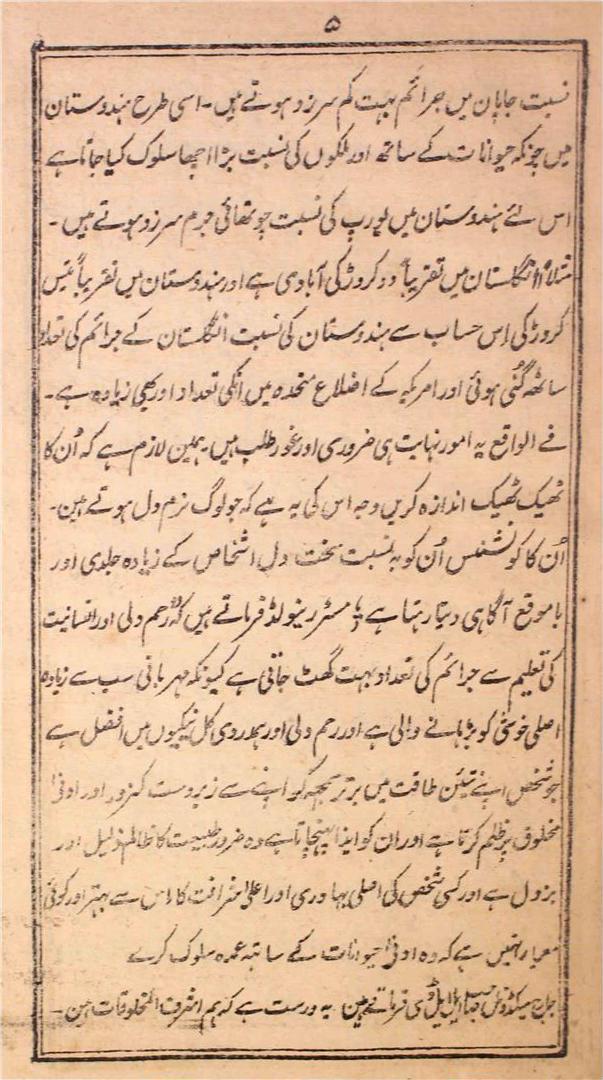 ۵
نسبت جاپان میں جرائم بہت کم سرزد ہوتے ہیں۔ اسی طرح ہندوستان
میں چونکہ حیوانات کے ساتھ اور ملکوں کی نسبت بڑا اچھا سلوک کیا جاتا ہے
اس لئے ہندوستان میں یورپ کی نسبت چوتھائی جرم سرزد ہوتے ہیں۔
مثلاً انگلستان میں تقریباً دو کروڑ کی آبادی ہے اور ہندوستان میں تقریباً تیس
کروڑ کی اس حساب سے ہندوستان کی نسبت انگلستان کے جرائم کی تعداد
ساٹھ گنی ہوئی اور امریکہ کے اضلاع متحدہ میں انکی تعداد اور بھی زیادہ ہے۔
فے الواقع یہ امور نہایت ہی ضروری اور غور طلب ہیں۔ ہمین لازم ہے کہ اُن کا
ٹھیک ٹھیک اندازہ کریں وجہ اس کی یہ ہے کہ جو لوگ نرم دل ہوتے ہین۔
اُن کا کونشنس اُن کو بہ نسبت سخت دل اشخاص کے زیادہ جلدی اور
باموقع آگاہی دیتا رہتا ہے مسٹر رینولڈ فرماتے ہیں کہ رحم دلی اور انسانیت
کی تعلیم سے جرائم کی تعداد بہت گھٹ جاتی ہے کیونکہ مہربانی سب سے زیادہ
اصلی خوشی کو بڑہانے والی ہے اور رحم دلی اور ہمدردی کل نیکیوں میں افضل ہے
جو شخص اپنے تئین طاقت میں برتر سمجہہ کر اپنے سے زبردست کمزور اور ادنیٰ
مخلوق پر ظلم کرتا ہے اور ان کو ایذا پہنچاتا ہے وہ ضرور طبیعت کا ظالم ذلیل اور
بزدل ہے اور کسی شخص کی اصلی بہادری اور اعلیٰ شرافت کا اس سے بہتر اور کوئی
معیار نہیں ہے کہ وہ ادنیٰ حیوانات کے ساتہہ عمدہ سلوک کرے
جان میکڈونلڈ صاحب ایل ایل ڈی فرماتے ہین۔ یہ درست ہے کہ ہم اشرف المخلوقات ہین۔